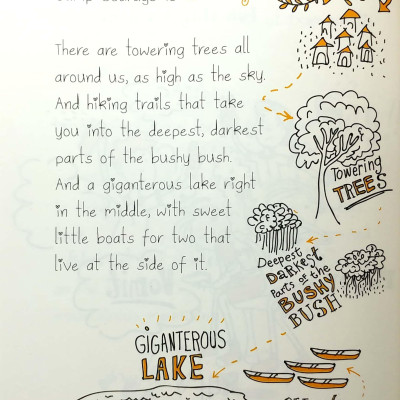 There are towering trees all
around us, as high as the sky.
And hiking trails that take
you into the deepest, darkest
parts of the bushy bush.
And a giganterous lake right
in the middle, with sweet
little boats for two that
live at the side of it.
Towering
TREES
Deepest
DARKEST
Parts of the
BUSHY
BUSH
GIGANTEROUS
LAKE